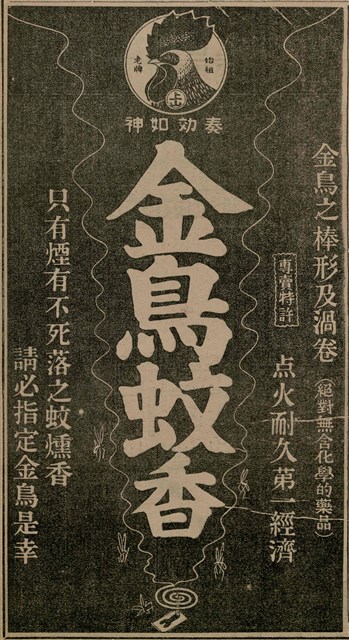 始祖
老牌
奏効如神
金鳥之棒形及渦卷（絕對無含化學的藥品）
專賣特許
点火耐久苐一經濟
金鳥蚊香
只有煙有不死落之蚊燻香
請必指定金鳥是幸